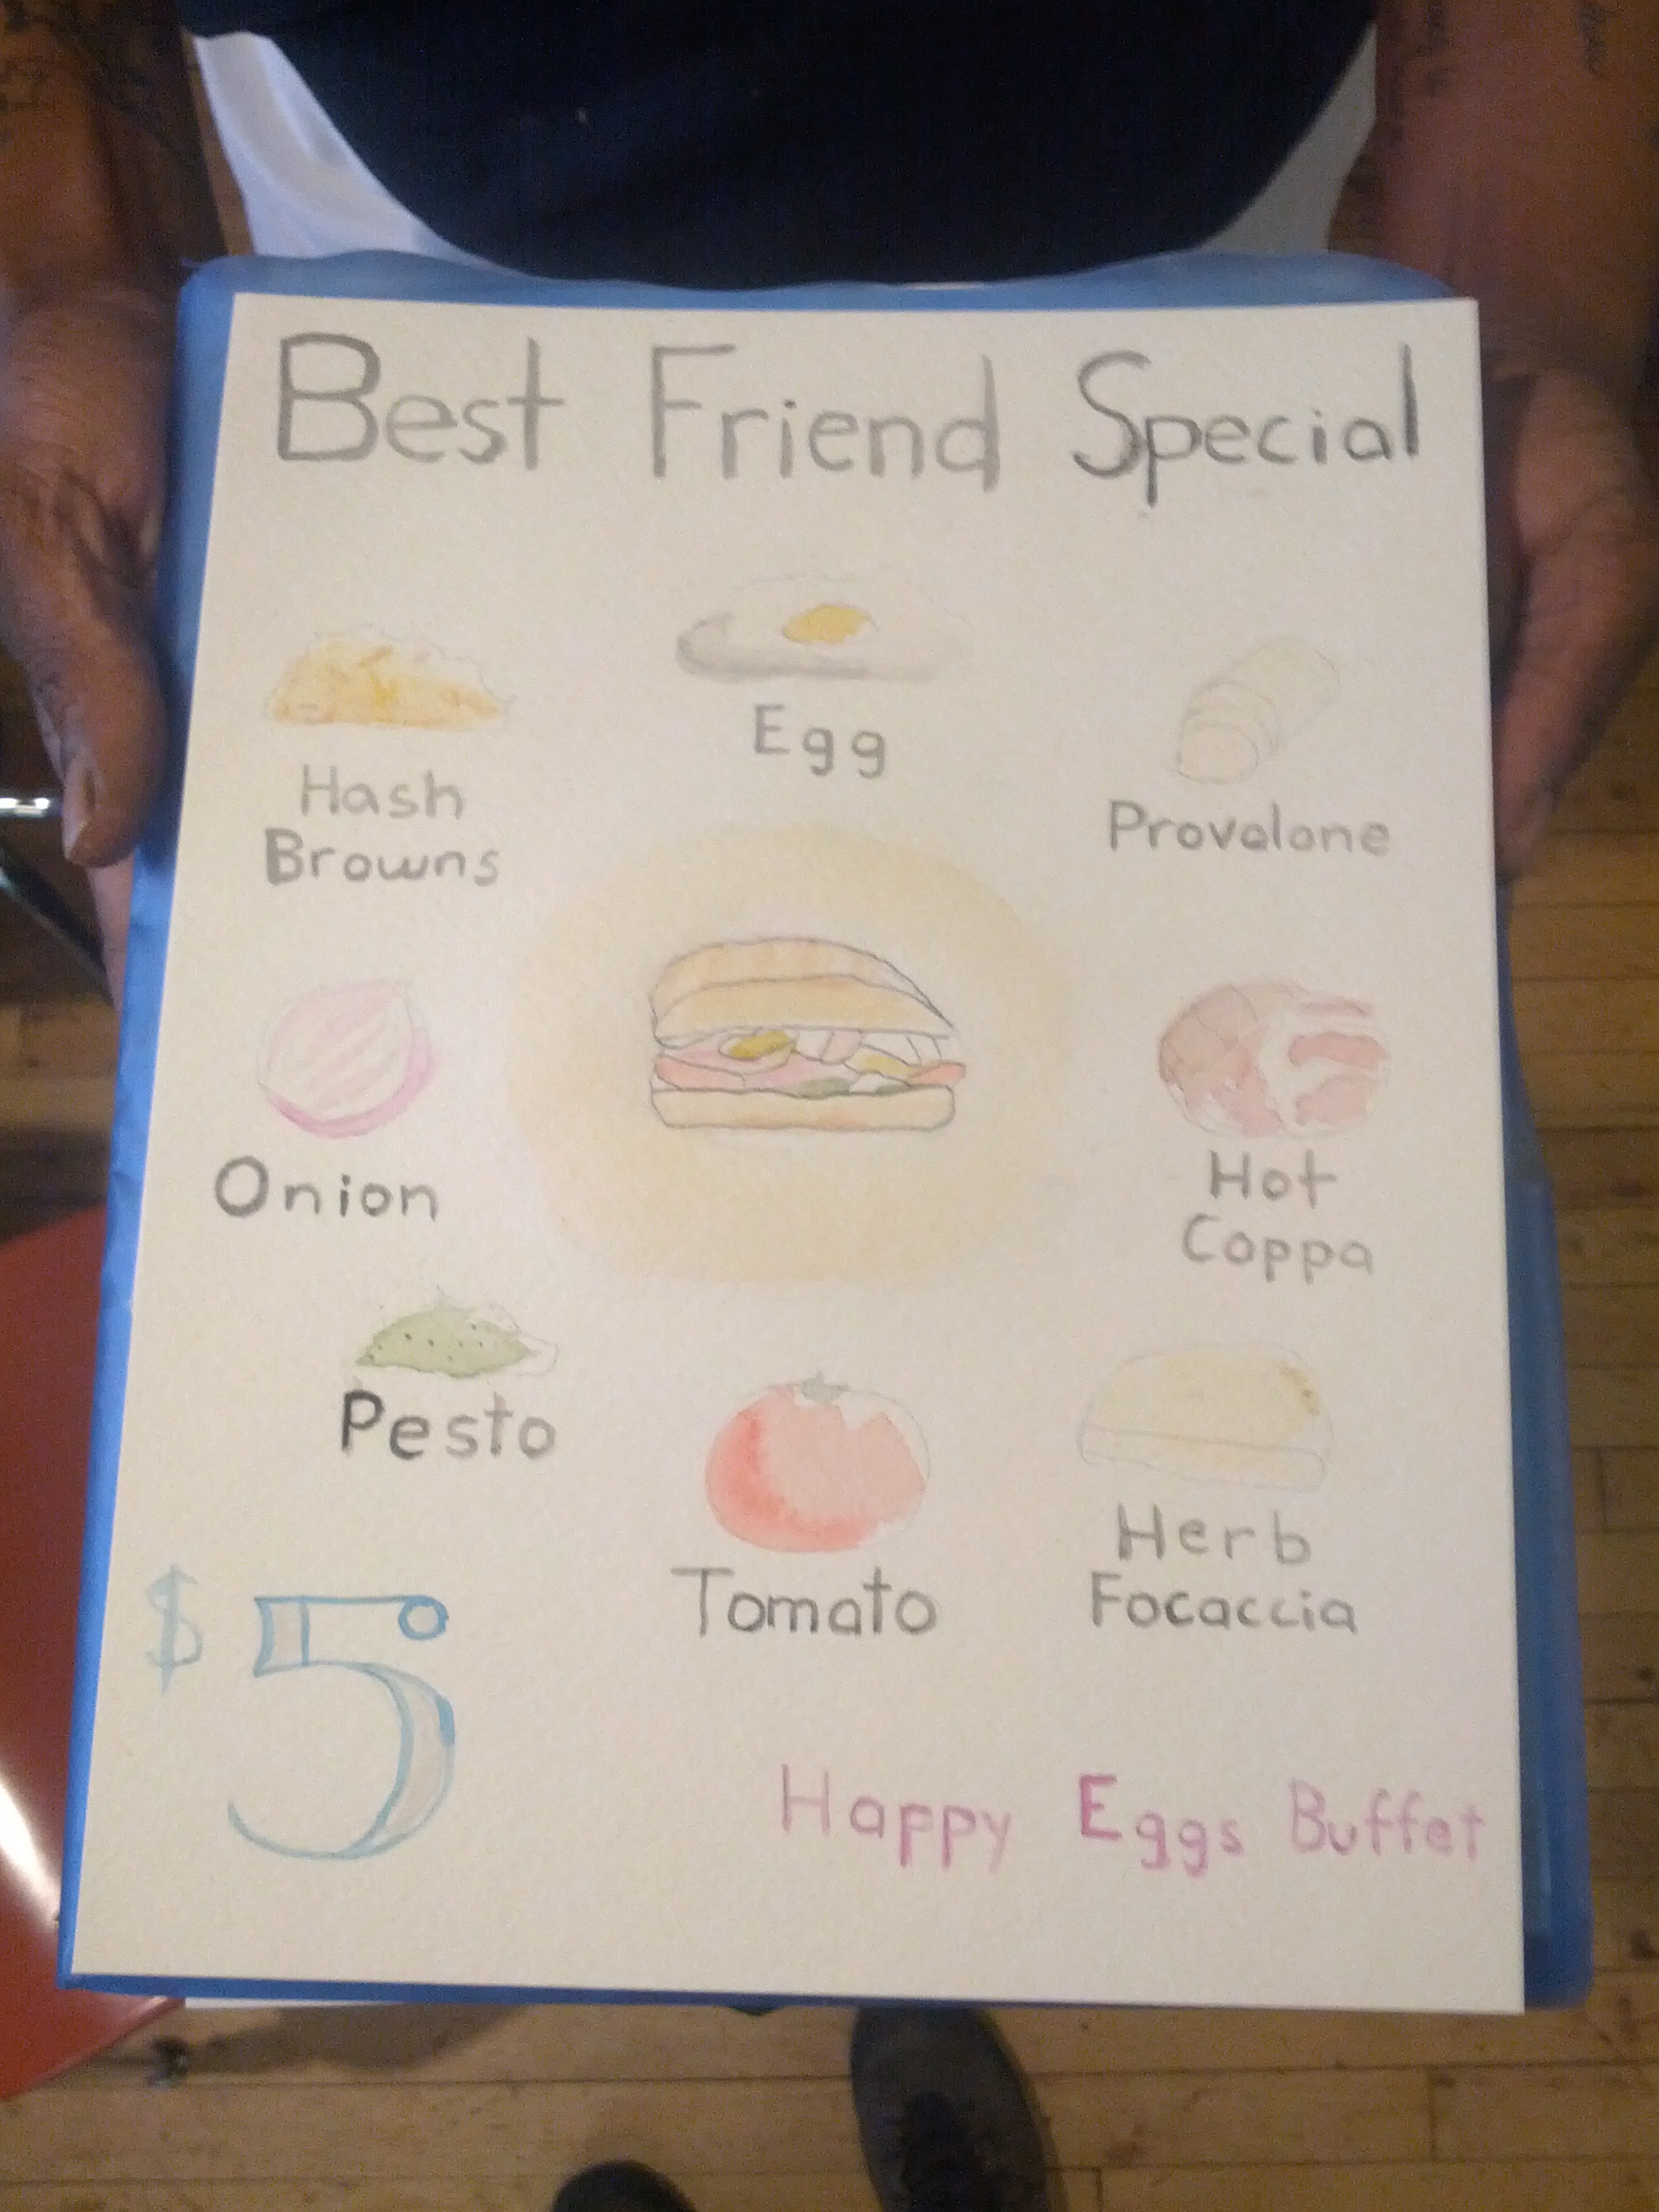 Best Friend Special
Egg
Hash
Browns
Provolone
Onion
Hot
Coppa
Pesto
Tomato
Herb
Focaccia
$5
Happy Eggs Buffet